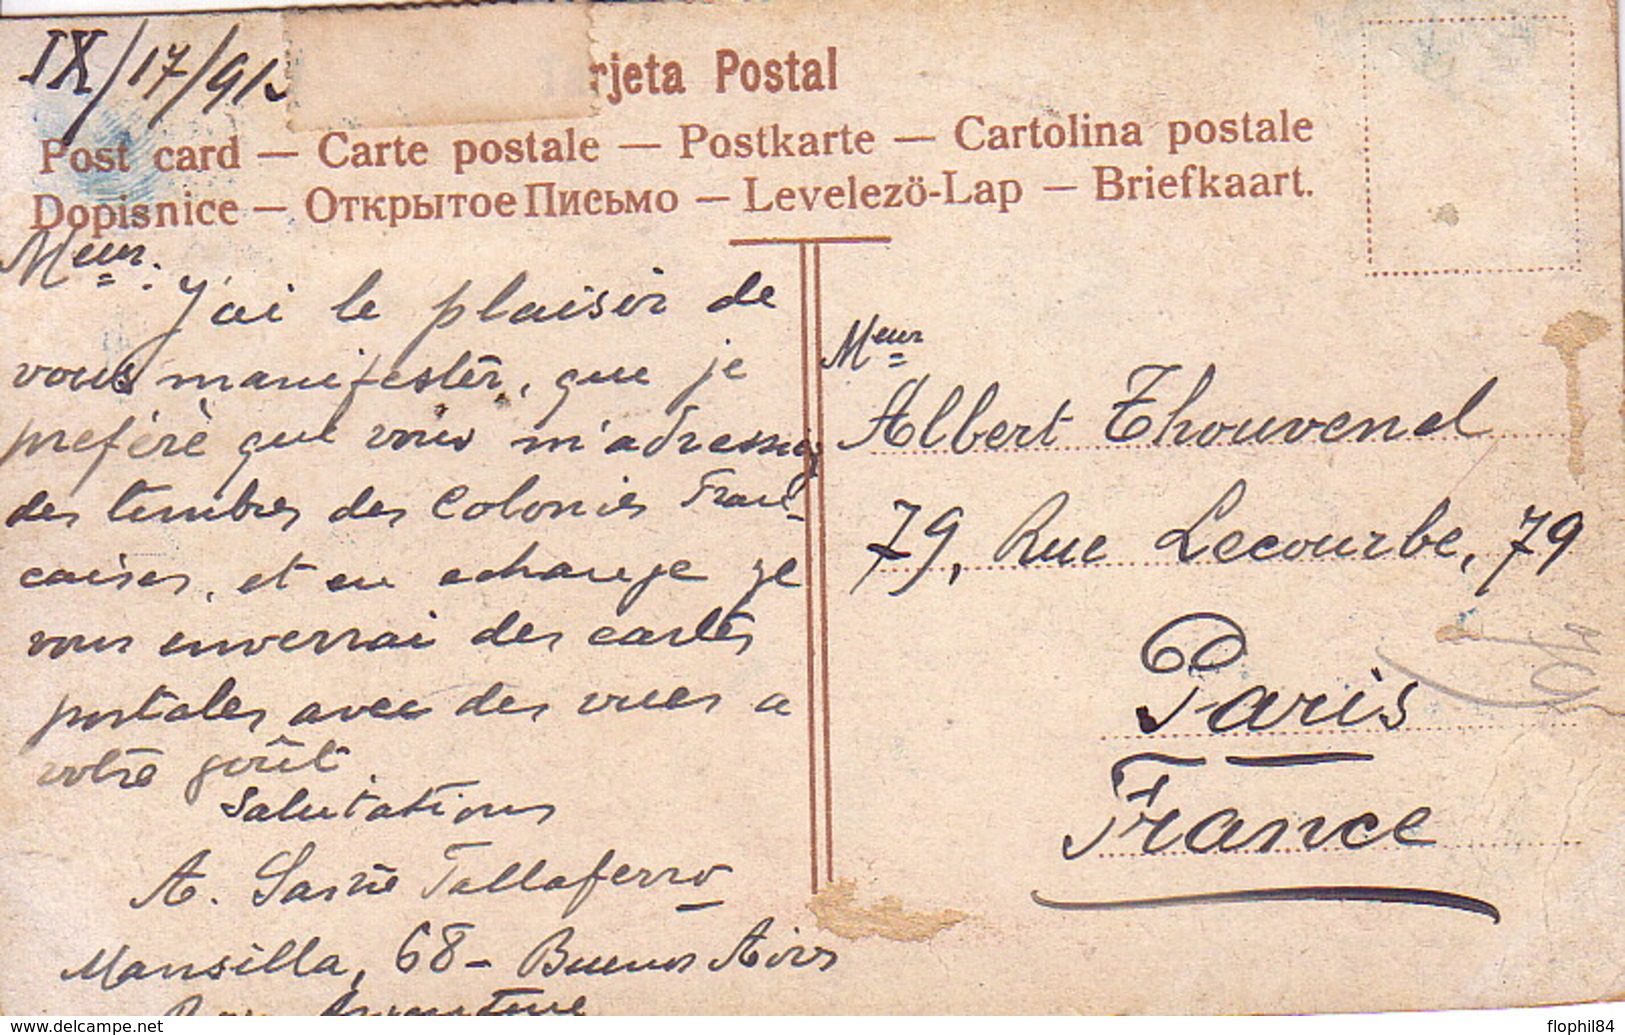 IX/17/91
Tarjeta Postal
Post card — Carte postale — Postkarte — Cartolina postale
Dopisnice — Открытое Письмо — Levelezö-Lap — Briefkaart.
Meur.
J'ai le plaisir de
vous manifester, que je
preférè que vous m'adressiez
des timbres des Colonies Fran-
caises, et en echange je
vous enverrai des cartes
postales avec des vues a
votre goût.
Salutations
A. Tallaferro
Mansilla, 68 - Buenos Aires
Rep. Argentine
Meur
Albert Thouvenel
79, Rue Lecourbe, 79
Paris
France
delcampe.net
flophil84